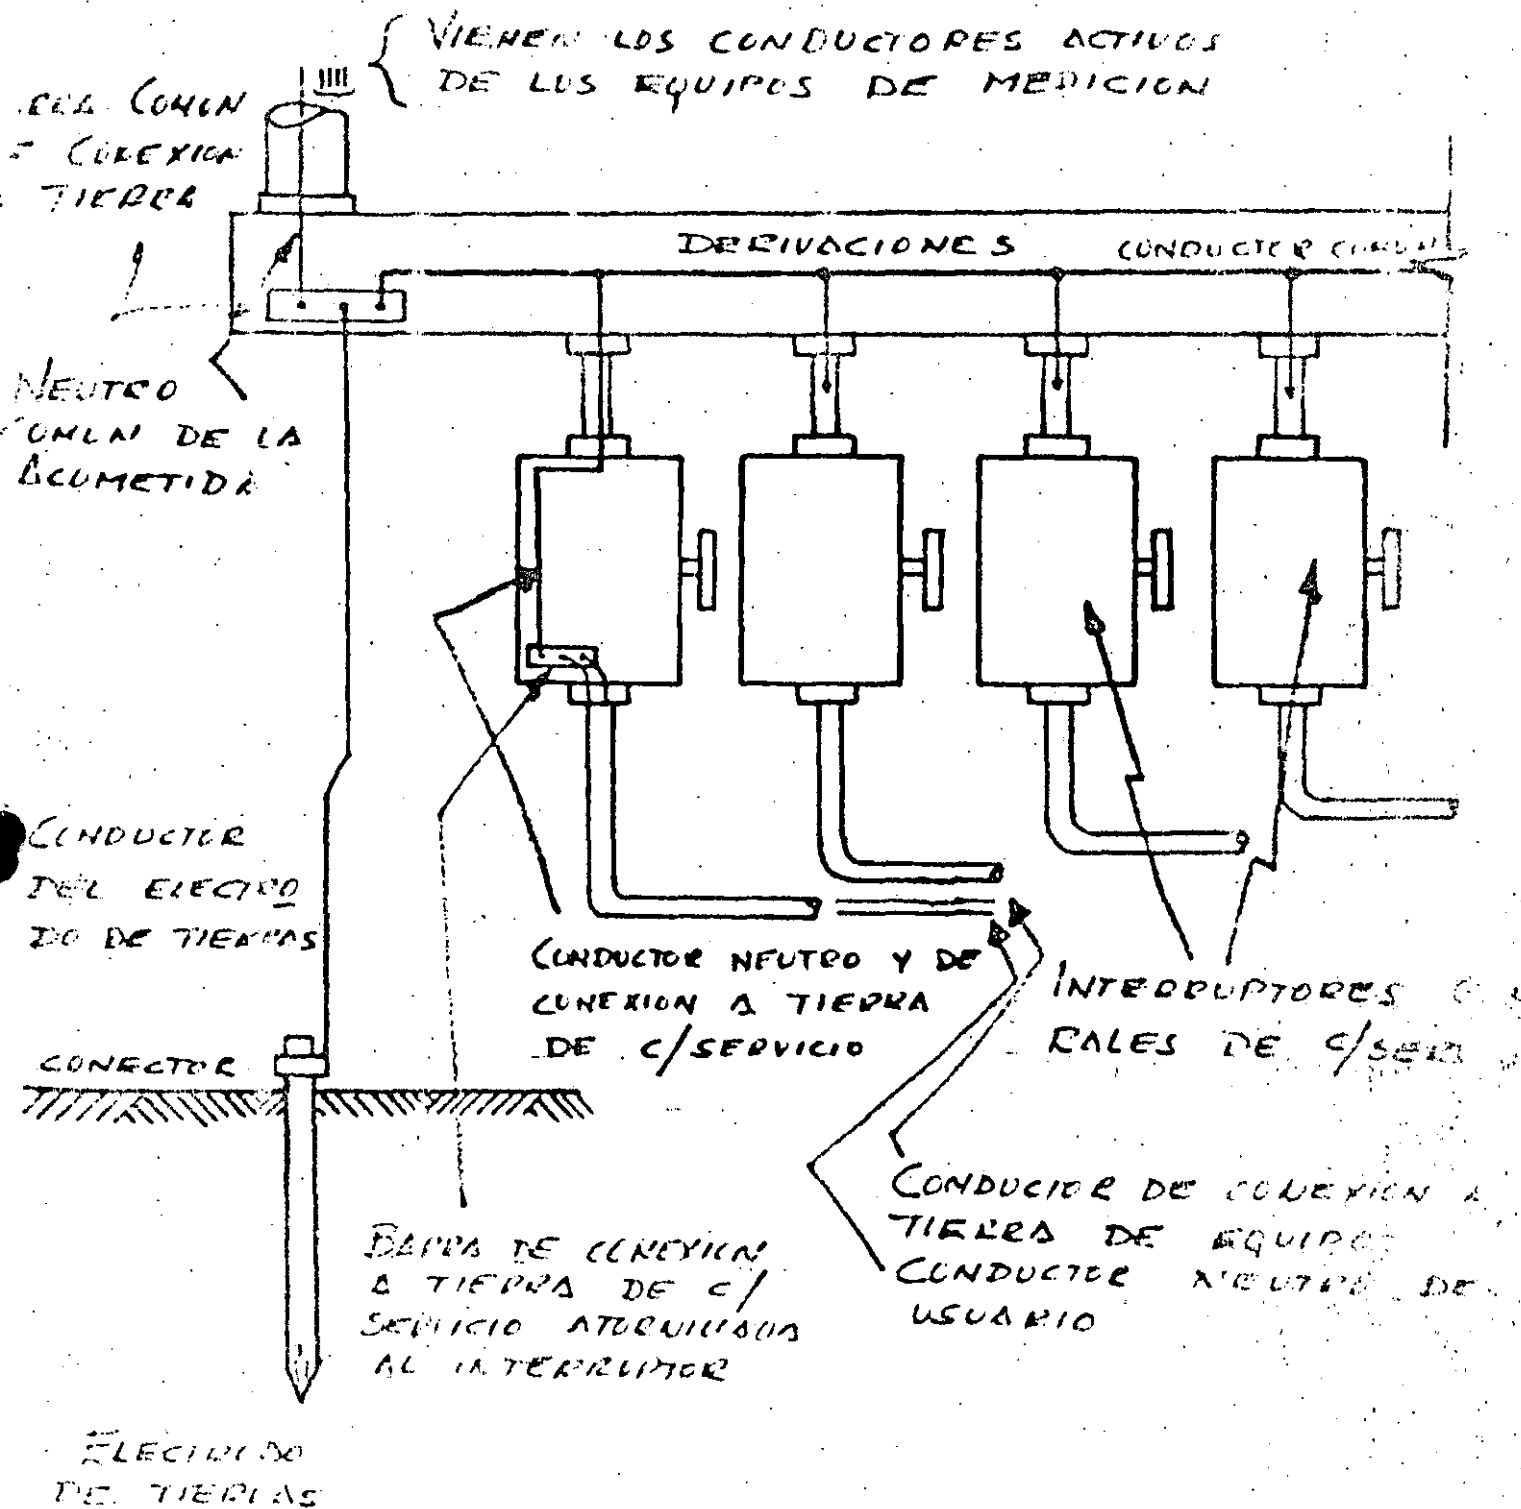 VIENEN LOS CONDUCTORES ACTIVOS
DE LOS EQUIPOS DE MEDICION
COMUN
CONEXION
TIERRA
DERIVACIONES
CONDUCTOR COMUN
NEUTRO
COMUN DE LA
ACOMETIDA
CONDUCTOR
DEL ELECTRO
DO DE TIERRAS
CONECTOR
CONDUCTOR NEUTRO Y DE
CONEXION A TIERRA
DE C/SERVICIO
INTERRUPTORES
RALES DE C/SERV
CONDUCTOR DE CONEXION A
TIERRA DE EQUIPOS
CONDUCTOR NEUTRO DE
USUARIO
BARRA DE CONEXION
A TIERRA DE C/
SERVICIO ATORNILLADA
AL INTERRUPTOR
ELECTRODO
DE TIERRAS